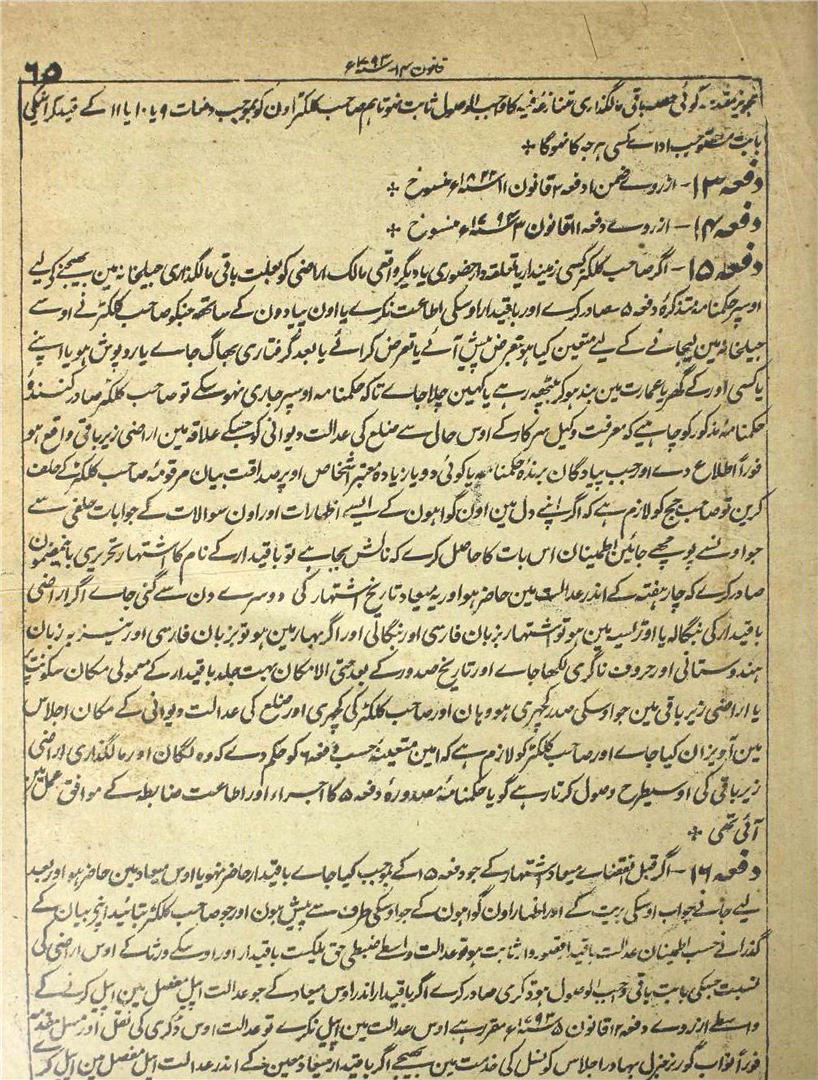 قانون ۱۴ سنہ ۱۷۹۳ء
۶۵
تجویز مقدمہ۔ کوئی حصہ باقی مالگذاری متنازعہ فیہ کا واجب الوصول ثابت نہو تاہم صاحب کلکٹر اون کو بموجب دفعات ۹ یا ۱۰ یا ۱۱ کے قید کرانیکی
بابت مستوجب اداے کسی ہرجہ کا نہوگا ÷
دفعہ ۱۳۔ ازروے ضمن ۱ دفعہ ۲ قانون ۱۱ سنہ ۱۸۲۲ء منسوخ ÷
دفعہ ۱۴۔ ازروے دفعہ ۱۱ قانون ۳ سنہ ۱۷۹۴ء منسوخ ÷
دفعہ ۱۵۔ اگر صاحب کلکٹر کسی زمیندار یا تعلقہ دار حضوری یا دیگر واقعی مالک اراضی کو بعلت باقی مالگذاری جیلخانہ مین بھیجنے کے لیے
اوسپر حکمنامہ متذکرۂ دفعہ ۵ صادر کرے اور باقیدار اوسکی اطاعت نکرے یا اون پیادون کے ساتھ جنکو صاحب کلکٹر نے اوسے
جیلخانہ مین لیجانے کے لیے متعین کیا ہو تعرض پیش آئے یا تعرض کرائے یا بعد گرفتاری بھاگ جاے یا روپوش ہو یا اپنے
یا کسی اور کے گھر یا عمارت مین بند ہو کر بیٹھ رہے یا کہین چلا جاے تاکہ حکمنامہ اوسپر جاری نہوسکے تو صاحب کلکٹر صادر کنندۂ
حکمنامۂ مذکور کو چاہیے کہ معرفت وکیل سرکار کے اوس حال سے ضلع کی عدالت دیوانی کو جسکے علاقہ مین اراضی زیر باقی واقع ہو
فوراً اطلاع دے اور جب پیادگان برندۂ حکمنامہ یا کوئی دو یا زیادہ معتبر اشخاص اوپر صداقت بیان مرقومۂ صاحب کلکٹر کے حلف
کرین تو صاحب جج کو لازم ہے کہ اگر اپنے دل مین اون گواہون کے ایسے اظہارات اور اون سوالات کے جوابات حلفی سے
جو اونسے پوچھے جائین اطمینان اس بات کا حاصل کرے کہ نالش بجا ہے تو باقیدار کے نام کا اشتہار تحریری باین مضمون
صادر کرے کہ چار ہفتہ کے اندر عدالت مین حاضر ہو اور یہ میعاد تاریخ اشتہار کی دوسرے دن سے گنی جاے اگر اراضی
باقیدار کی بنگالہ یا اوڑیسہ مین ہو تو اشتہار بزبان فارسی اور بنگالی اور اگر بہار مین ہو تو بزبان فارسی اور نیز بہ زبان
ہندوستانی اور حروف ناگری لکھا جاے اور تاریخ صدور کے بعد حتی الامکان بہت جلد باقیدار کے معمولی مکان سکونت پر
یا اراضی زیر باقی مین جو اوسکی صدر کچہری ہو وہان اور صاحب کلکٹر کی کچہری اور ضلع کی عدالت دیوانی کے مکان اجلاس
مین آویزان کیا جاے اور صاحب کلکٹر کو لازم ہے کہ امین متعینہ حسب دفعہ ۶ کو حکم دے کہ وہ لگان اور مالگذاری اراضی
زیر باقی کی اوسیطرح وصول کرتا رہے گویا حکمنامۂ مصدورۂ دفعہ ۵ کا اجراء اور اطاعت ضابطہ کے موافق عمل مین
آئی تھی ÷
دفعہ ۱۶۔ اگر قبل انقضاے میعاد اشتہار کے جو دفعہ ۱۵ کے بموجب کیا جاے باقیدار حاضر نہو یا اوس میعاد مین حاضر ہو اور بعد
لیے جانے جواب اوسکی بریت کے اور اظہار اون گواہون کے جو اوسکی طرف سے پیش ہون اور جو صاحب کلکٹر بتائید اپنی بیان کے
گذرانے حسب اطمینان عدالت باقیدار قصوروار ثابت ہو تو عدالت واسطے ضبطی حق ملکیت باقیدار اور اوسکے ورثا کے اوس اراضی کی
نسبت جسکی بابت باقی واجب الوصول ہو ڈکری صادر کرے اگر باقیدار اندر اوس میعاد کے جو عدالت اپیل مفصل مین اپیل کرنے کے
واسطے ازروے دفعہ ۱۲ قانون ۵ سنہ ۱۷۹۳ء مقرر ہے اوس عدالت مین اپیل نکرے تو عدالت اوس ڈکری کی نقل اور مسل مقدمہ
فوراً نواب گورنر جنرل بہادر اجلاس کونسل کی خدمت مین بھیجے اگر باقیدار میعاد معین کے اندر عدالت اپیل مفصل مین اپیل کرے